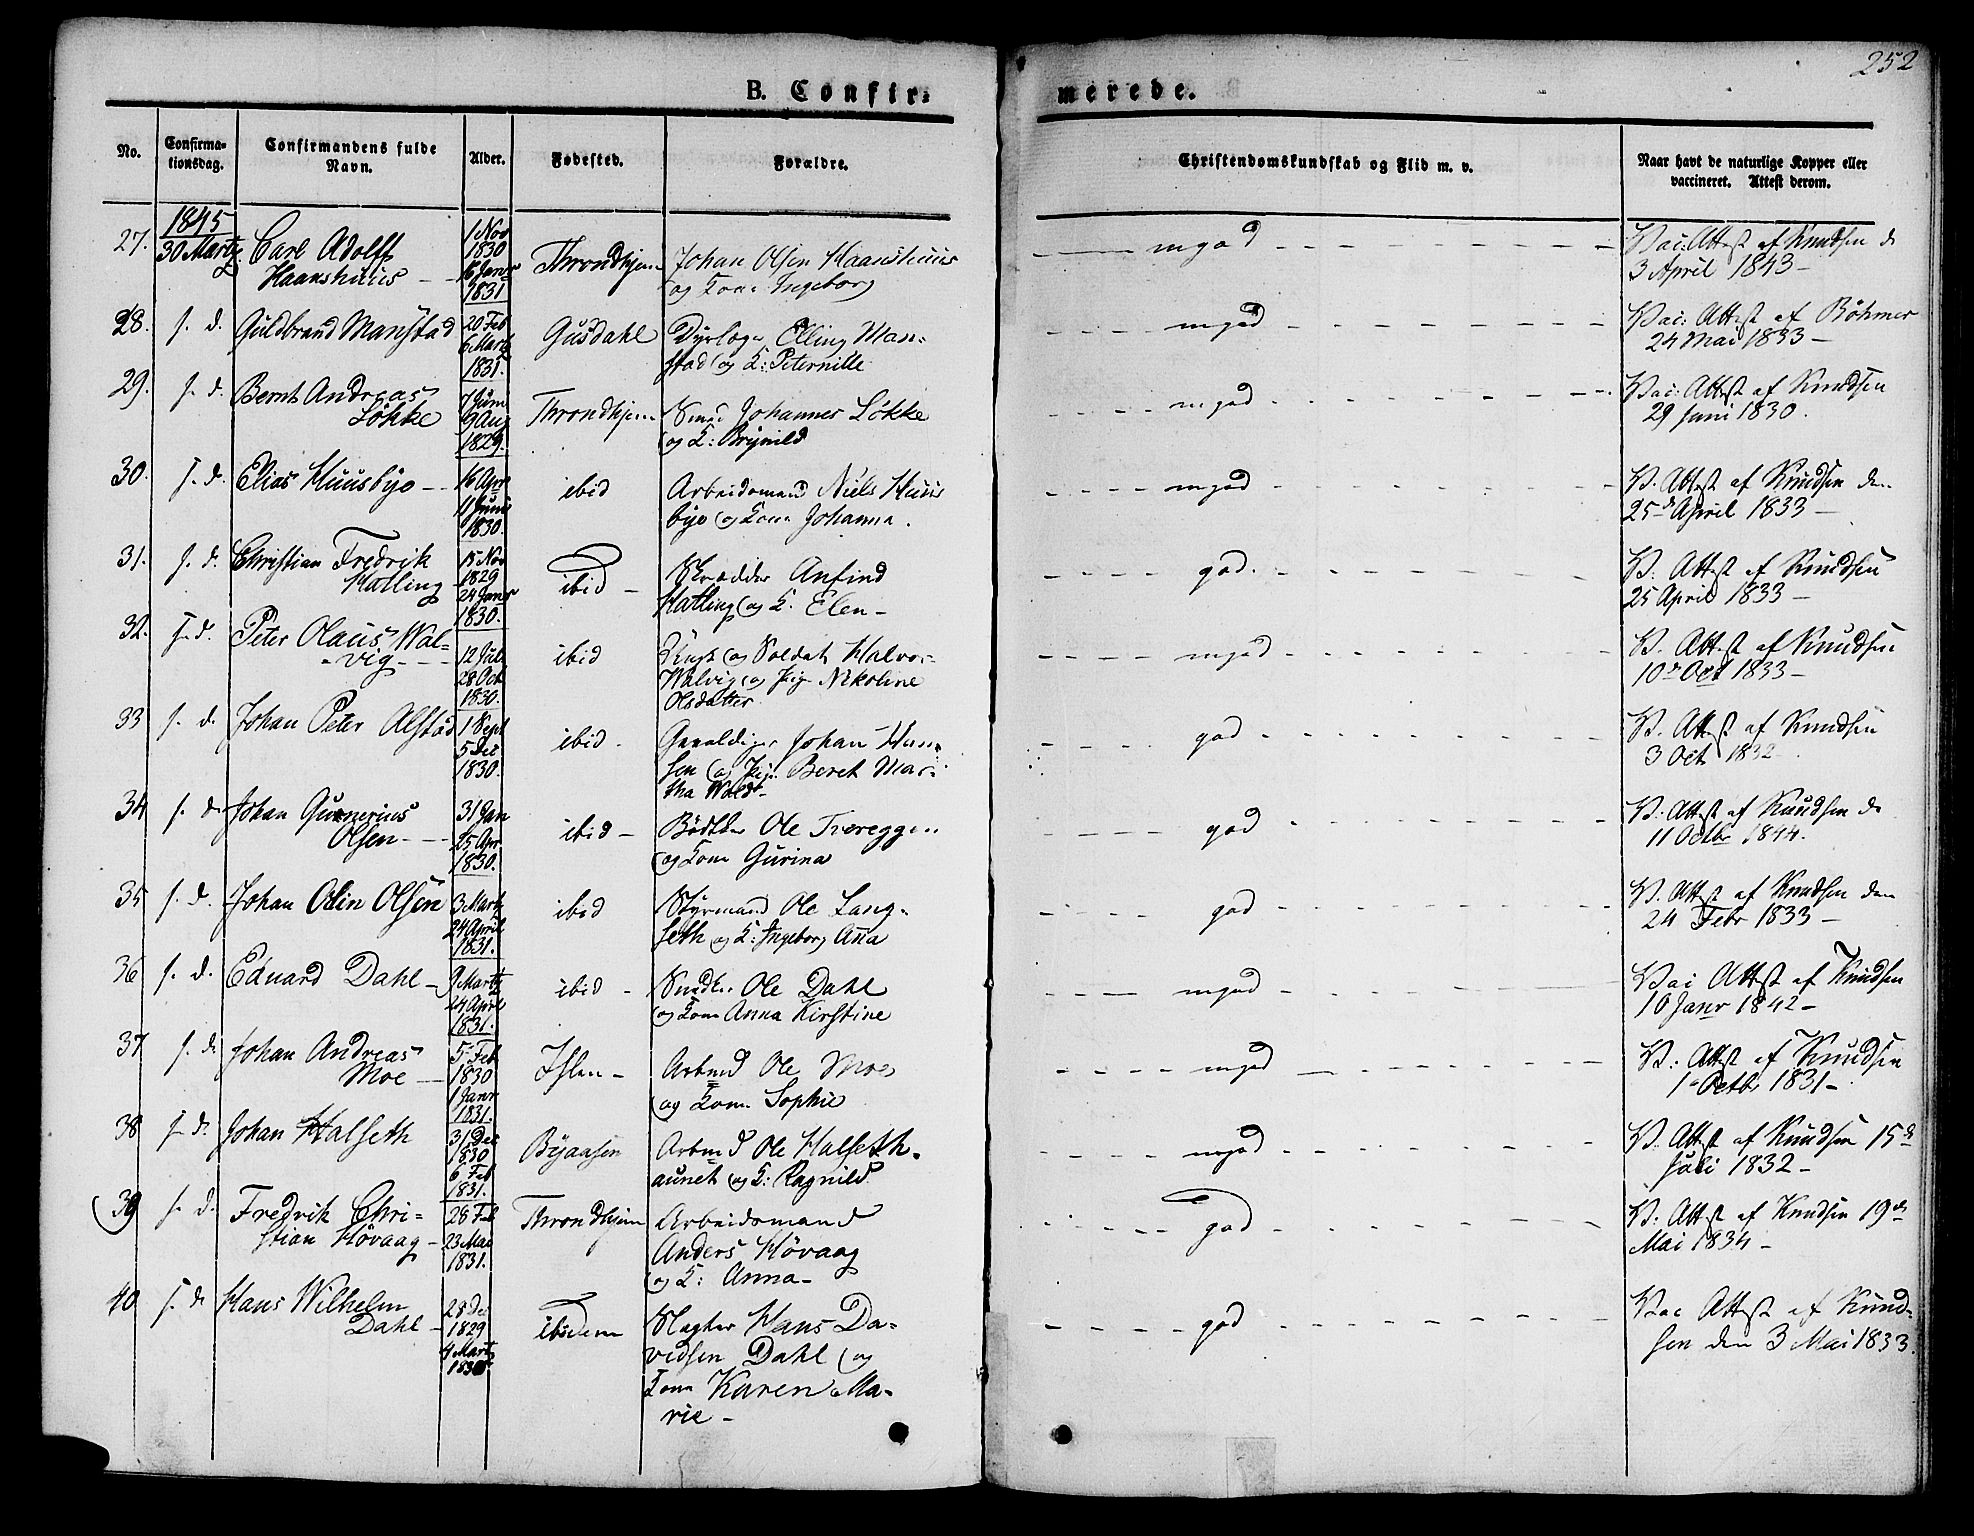 252
B. Confir-
merede.
No.
Confirma-
tionsdag.
Confirmandens fulde
Navn.
Alder.
Fødested.
Forældre.
Christendomskundskab og Flid m. v.
Naar havt de naturlige Kopper eller
vaccineret. Attest derom.
1845
27. 30 Martz Carl Adolff
Haanshuus
1 Nov
1830
16 Janr
1831
Throndhjem
Johan Olsen Haanshuus
og Kone Ingeborg
mgod
Vac: Attest af Knudsen d
3 April 1843
28. s. d. Guldbrand Manstad
20 Feb
6 Martz
1831.
Gusdahl
Dyrlæge Elling Man-
stad og K: Peternille
mgod
Vac: Attest af Böhmer
24 Mai 1833
29. s. d. Bernt Andreas
Løkke
7 Juni
9 Aug
1829.
Throndhjem
Smed Johannes Løkke
og K: Brynild
mgod
Vac: Attest af Knudsen
29 Juni 1830.
30. s. d. Elias Huusbye
16 Apr
11 Juni
1830.
ibid
Arbeidsmand Niels Huus
bye og Kone Johanna.
mgod
V. Attest af Knudsen den
25de April 1833
31. s. d. Christian Fredrik
Hatling
15 Nov
1829
24 Janr
1830.
ibid
Skrædder Anfind
Hatling og K. Elen
god.
V. Attest af Knudsen
25 April 1833
32. s. d. Peter Olaus Wal-
vig
12 Juli
28 Oct
1830.
ibid
og Soldat Halvor
Walvig og Pige Nikoline
Olsdatter
mgod
V. Attest af Knudsen
10 Oct 1833
33 s. d. Johan Peter Alstad
1 Sept
5 Dec
1830.
ibid.
Gevaldiger Johan Han-
sen og Pige Beret Mar-
tha Woldt
god
V. Attest af Knudsen
3 Oct 1832
34 s. d. Johan Gunerius
Olsen
31 Jan
25 Apr
1830.
ibid
Bødker Ole Trereggen
og Kone Gurina
god
V. Attest af Knudsen d
11 Octbr 1844.
35 s. d. Johan Odin Olsen
3 Martz
24 April
1831.
ibid
Styrmand Ole Lang-
seth og K: Ingeborg Ana
god
V. Attest af Knudsen den
24 Febr 1833
36 s. d. Eduard Dahl
9 Martz
24 April
1831.
ibid
Snedker Ole Dahl
og Kone Anna Kirstine
mgod
Vac Attest af Knudsen
10 Janr 1842
37 s. d. Johan Andreas
Moe
5 Feb
1830
1 Janr
1831.
Ihlen
Arbmd Ole Moe
og Kone Sophie
mgod
V: Attest af Knudsen
1 Octbr 1831
38 s. d. Johan Halseth
31 Dec
1830
6 Feb
1831.
Byaasen
Arbmd Ole Halseth-
aunet og K: Ragnild
mgod
V. Attest af Knudsen 15de
Juli 1832
39 s. d. Fredrik Chri-
stian Høvaag
28 Feb
23 Mai
1831.
Throndhjem
Arbeidsmand
Anders Høvaag
og K: Anna
god
V. Attest af Knudsen 19de
Mai 1834
40 s. d. Hans Wilhelm
Dahl
28 Dec
1829
4 Martz
1830
ibidem
Slagter Hans Da-
vidsen Dahl og
Kone Karen Ma-
rie
god
Vac Attest af Knud-
sen den 3 Mai 1833.